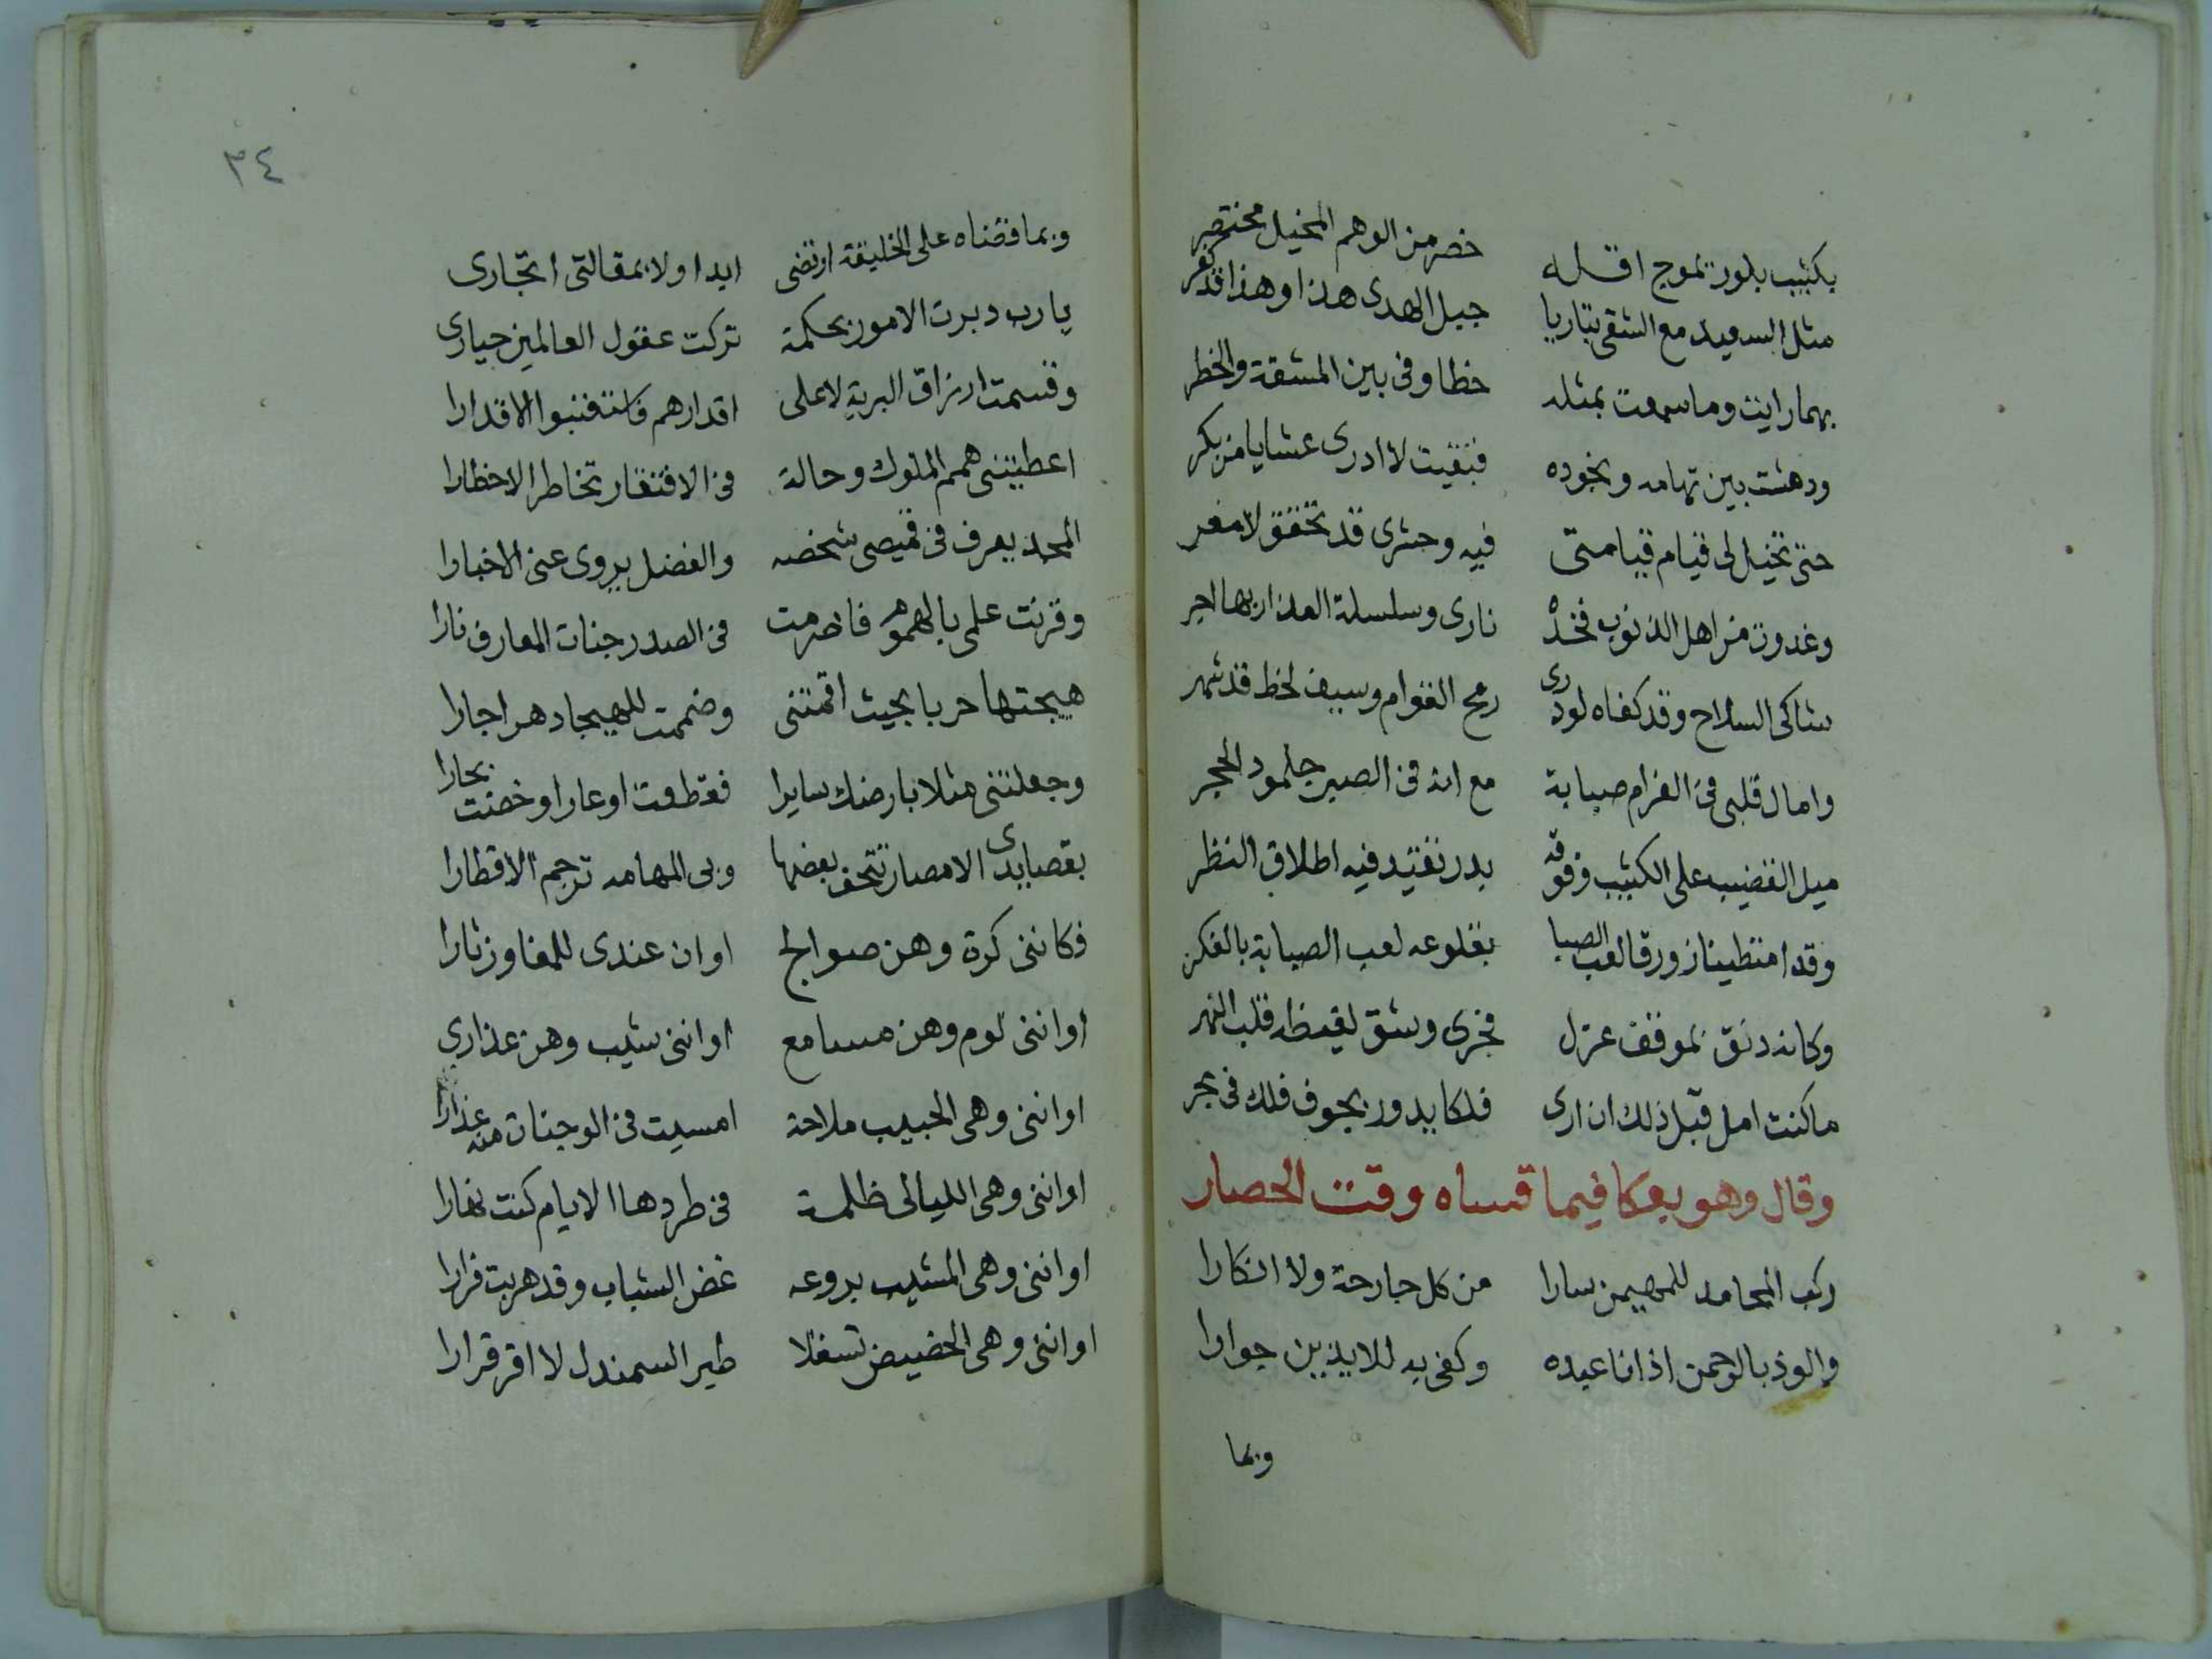 بكثيب بلور تموج اقله خصر من الوهم المخيل مختصر
مثل السعيد مع الشقى تباريا جبل الهدى هذا وهذا قد كفر
بهما رايت وما سمعت بمثله خطا وفى بين المشقة والخطر
ودهشت بين تهامه ونجوده فبقيت لا ادرى عشايا من بكر
حتى تخيل لى قيام قيامتى فيه وحشرى قد تحقق لا مفر
وغدوت من اهل الذنوب فخده نارى وسلسلة العذار بها
شاكى السلاح وقد كفاه لو درى رمح القوام وسيف لحظ قد شهر
وامال قلبى فى الغرام صبابة مع انه فى الصبر جلمود الحجر
ميل القضيب على الكثيب وفوقه بدر تقيد فيه اطلاق النظر
وقد امتطينا زورقا لعب الصبا بقلوعه لعب الصبابة بالفكر
وكانه دنق بموقف عزل فجرى وشق لغيظه قلب النهر
ما كنت امل قبل ذلك ان ارى فلكا يدور بجوف فلك فى بحر
وقال وهو بعكا فيما قساه وقت الحصار
ركب المحامد للمهيمن سارا من كل جارحة ولا انكارا
والوذ بالرحمن اذ انا عبده وكفى به للايذين جوارا
وبما
٣٤
وبما قضاه على الخليقة ارتضى ابدا ولا بمقالتى اتجارى
يا رب دبرت الامور بحكمة تركت عقول العالمين حيارى
وقسمت ارزاق البرية لا على اقدارهم الاقدارا
اعطيتنى همم الملوك وحالة فى الافتقار تخاطر الاخطارا
المجد يعرف فى قميصى شخصه والفضل يروى عنى الاخبارا
وقرنت علمى بالهموم فاضرمت فى الصدر جنات المعارف نارا
هيجتها حربا بحيث اقمتنى وضممت للهيجا دهرا جارا
وجعلتنى مثلا بارضك سايرا فقطعت اوعارا وخضت بحارا
بقصايدى الامصار تتحف بعضها وبى المهامه ترجم الاقطارا
فكاننى كرة وهن صوالج او ان عندى للمفاوز ثارا
او اننى لوم وهن مسامع او اننى شيب وهن عذارى
او اننى وهى الحبيب ملاحة امسيت فى الوجنات منه عذارا
او اننى وهى الليالى ظلمة فى طردها الايام كنت نهارا
او اننى وهى المشيب بروعه غض الشباب وقد هربت فرارا
او اننى وهى الحضيض تسفلا طير السمندل لا اقر قرارا